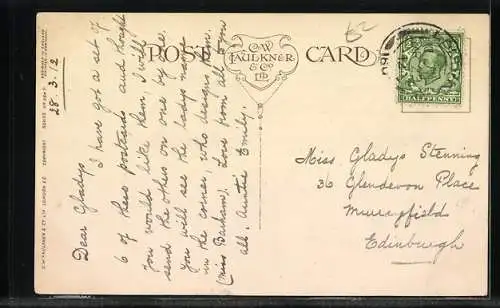 POST CARD
C.W.
FAULKNER
& CO
LTD
HALFPENNY
28.3.12
Dear Gladys,
I have got a set of
6 of these postcards and thought
you would like them, I will
send the others on one by one.
You will see the lady's name
in the corner, who designs them.
(Miss Barham). Love from all from
all. Auntie Emily.
Miss Gladys Stenning
36 Glendevon Place
Murrayfield
Edinburgh
C.W. FAULKNER & CO LTD LONDON E.C.
COPYRIGHT